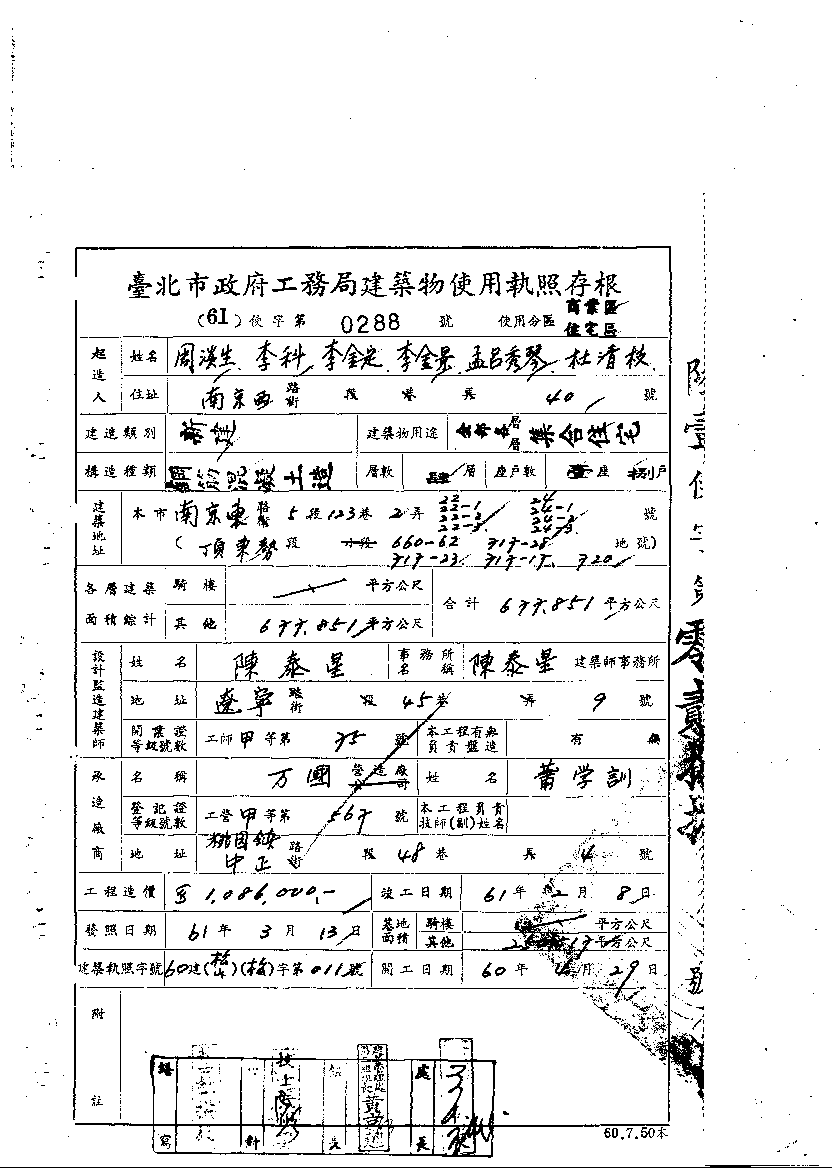 臺北市政府工務局建築物使用執照存根
(61)使字第 0288 號 使用分區 商業區 住宅區
起造人 姓名 周淡生 李科 李金定 李金景 孟呂秀琴 杜清枝
住址 南京西路街 段 巷 弄 40 號
建造類別 新建 建築物用途 全部各層層集合住宅
構造種類 鋼筋混凝土造 層數 肆層 座戶數 壹座 捌戶
建築地址 本市南京東路街 5段123巷2弄 22 22-1 22-2 22-3 24 24-1 24-2 24-3 號
(頂東勢段 小段 660-62 717-28 717-23 717-19 720 地號)
各層建築面積綜計 騎樓 平方公尺 合計 677.851平方公尺
其他 677.851平方公尺
設計監造建築師 姓名 陳泰星 事務所名稱 陳泰星 建築師事務所
地址 遼寧路街 段 45巷 弄 9 號
開業證等級號數 工師甲等第 75 號 本工程有無負責監造 有 無
承造廠商 名稱 万國 營造廠公司 姓名 蕭学訓
登記證等級號數 工營甲等第 567 號 本工程負責技師(副)姓名
地址 桃園鎮中正路街 段 48巷 弄 4 號
工程造價 1,086,000,- 竣工日期 61年 2月 8日
發照日期 61年 3月 13日 基地面積 騎樓 平方公尺
其他 平方公尺
建築執照字號 60建(松山)(松)字第011號 開工日期 60年 4月 29日
附註
繕寫 計 處長
60.7.50本
號